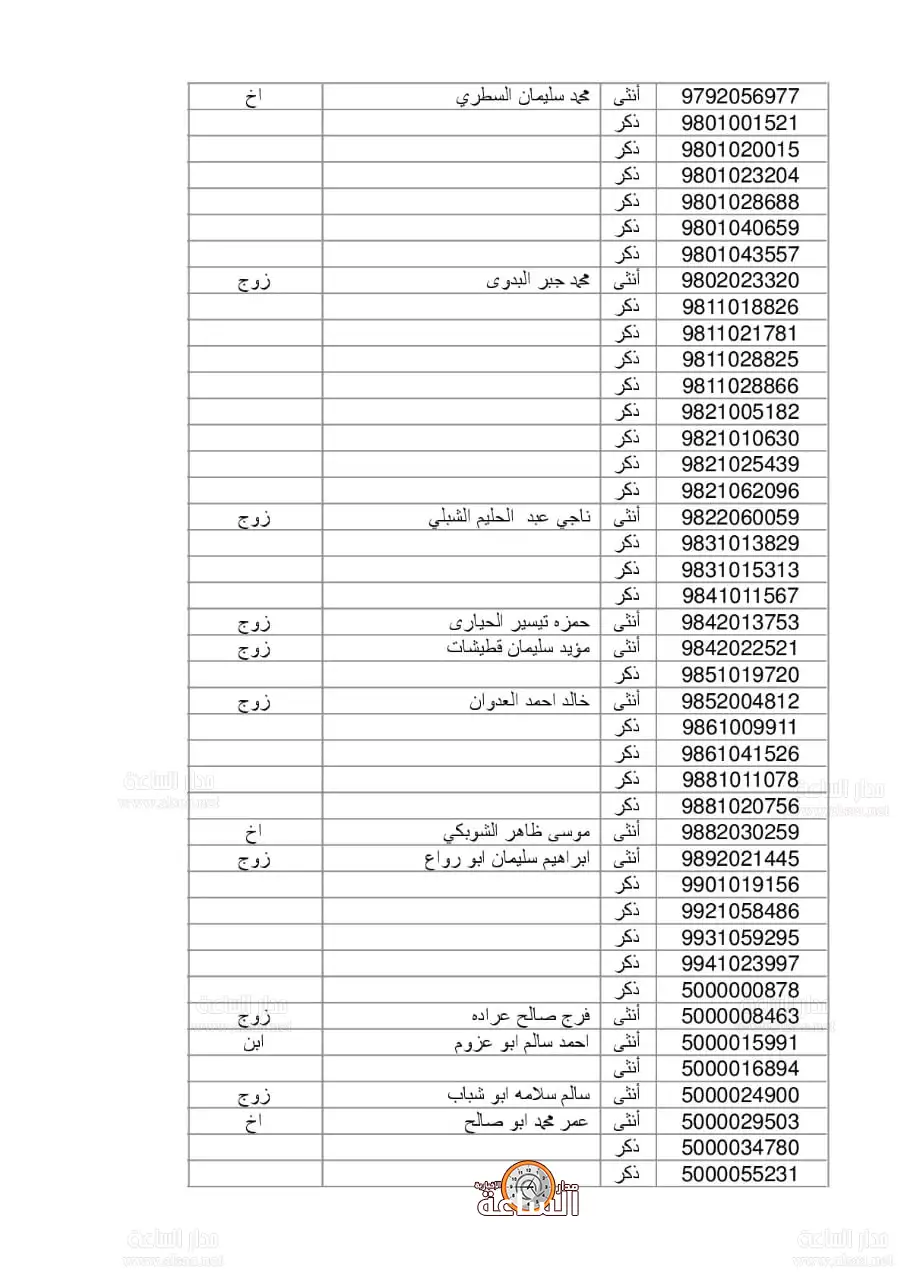 9792056977 أنثى محمد سليمان السطري اخ
9801001521 ذكر
9801020015 ذكر
9801023204 ذكر
9801028688 ذكر
9801040659 ذكر
9801043557 ذكر
9802023320 أنثى محمد جبر البدوى زوج
9811018826 ذكر
9811021781 ذكر
9811028825 ذكر
9811028866 ذكر
9821005182 ذكر
9821010630 ذكر
9821025439 ذكر
9821062096 ذكر
9822060059 أنثى ناجي عبد الحليم الشبلي زوج
9831013829 ذكر
9831015313 ذكر
9841011567 ذكر
9842013753 أنثى حمزه تيسير الحيارى زوج
9842022521 أنثى مؤيد سليمان قطيشات زوج
9851019720 ذكر
9852004812 أنثى خالد احمد العدوان زوج
9861009911 ذكر
9861041526 ذكر
9881011078 ذكر
9881020756 ذكر
9882030259 أنثى موسى ظاهر الشوبكي اخ
9892021445 أنثى ابراهيم سليمان ابو رواع زوج
9901019156 ذكر
9921058486 ذكر
9931059295 ذكر
9941023997 ذكر
5000000878 ذكر
5000008463 أنثى فرج صالح عراده زوج
5000015991 أنثى احمد سالم ابو عزوم ابن
5000016894 أنثى
5000024900 أنثى سالم سلامه ابو شباب زوج
5000029503 أنثى عمر محمد ابو صالح اخ
5000034780 ذكر
5000055231 ذكر
مدار الساعة الإخبارية